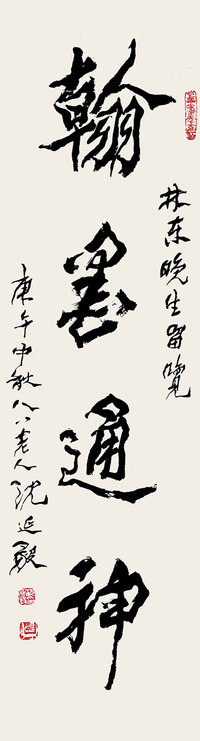 林东晚生留覽
翰墨通神
庚午中秋八八老人沈延毅